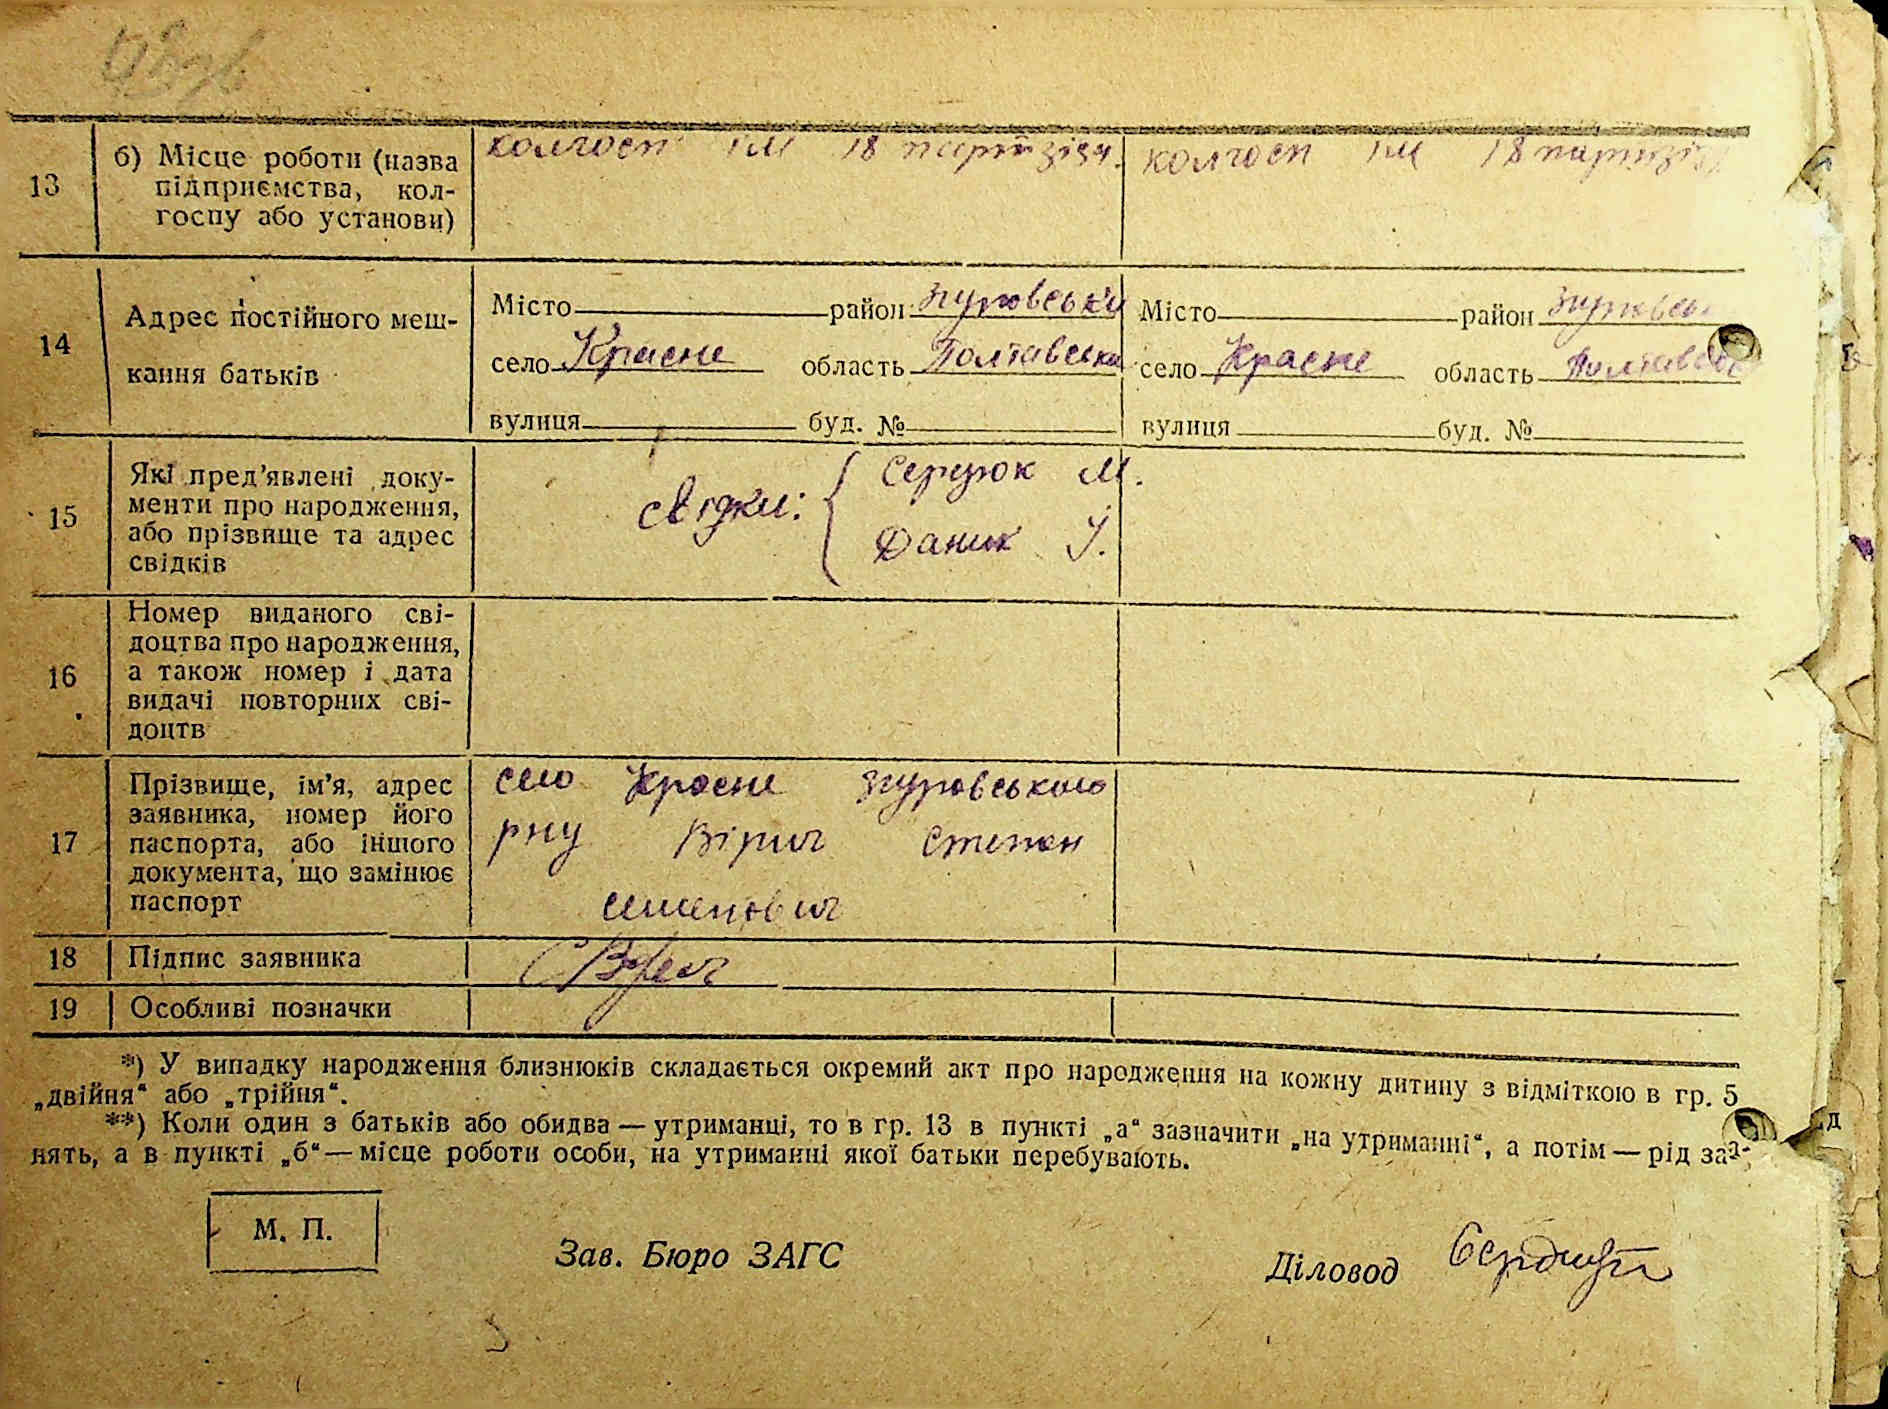 13 б) Місце роботи (назва підприємства, кол-
госпу або установи)
колгосп ім 18 партзізд. колгосп ім 18 партзізд
14 Адрес постійного меш-
кання батьків
Місто район Згуровськи Місто район Згуровськ
село Красне область Полтавська село Красне область Полтавськ
вулиця буд. № вулиця буд. №
15 Які пред’явлені доку-
менти про народження,
або прізвище та адрес
свідків
свідки: { Сердюк М.
Даник У.
16 Номер виданого сві-
доцтва про народження,
а також номер і дата
видачі повторних сві-
доцтв
17 Прізвище, ім’я, адрес
заявника, номер його
паспорта, або іншого
документа, що замінює
паспорт
село Красне Згуровського
рну Вірич Степан
Семенович
18 Підпис заявника
19 Особливі позначки
*) У випадку народження близнюків складається окремий акт про народження на кожну дитину з відміткою в гр. 5
„двійня“ або „трійня“.
**) Коли один з батьків або обидва — утриманці, то в гр. 13 в пункті „а“ зазначити „на утриманні“, а потім — рід за-
нять, а в пункті „б“ — місце роботи особи, на утриманні якої батьки перебувають.
М. П.
Зав. Бюро ЗАГС
Діловод Сердюк